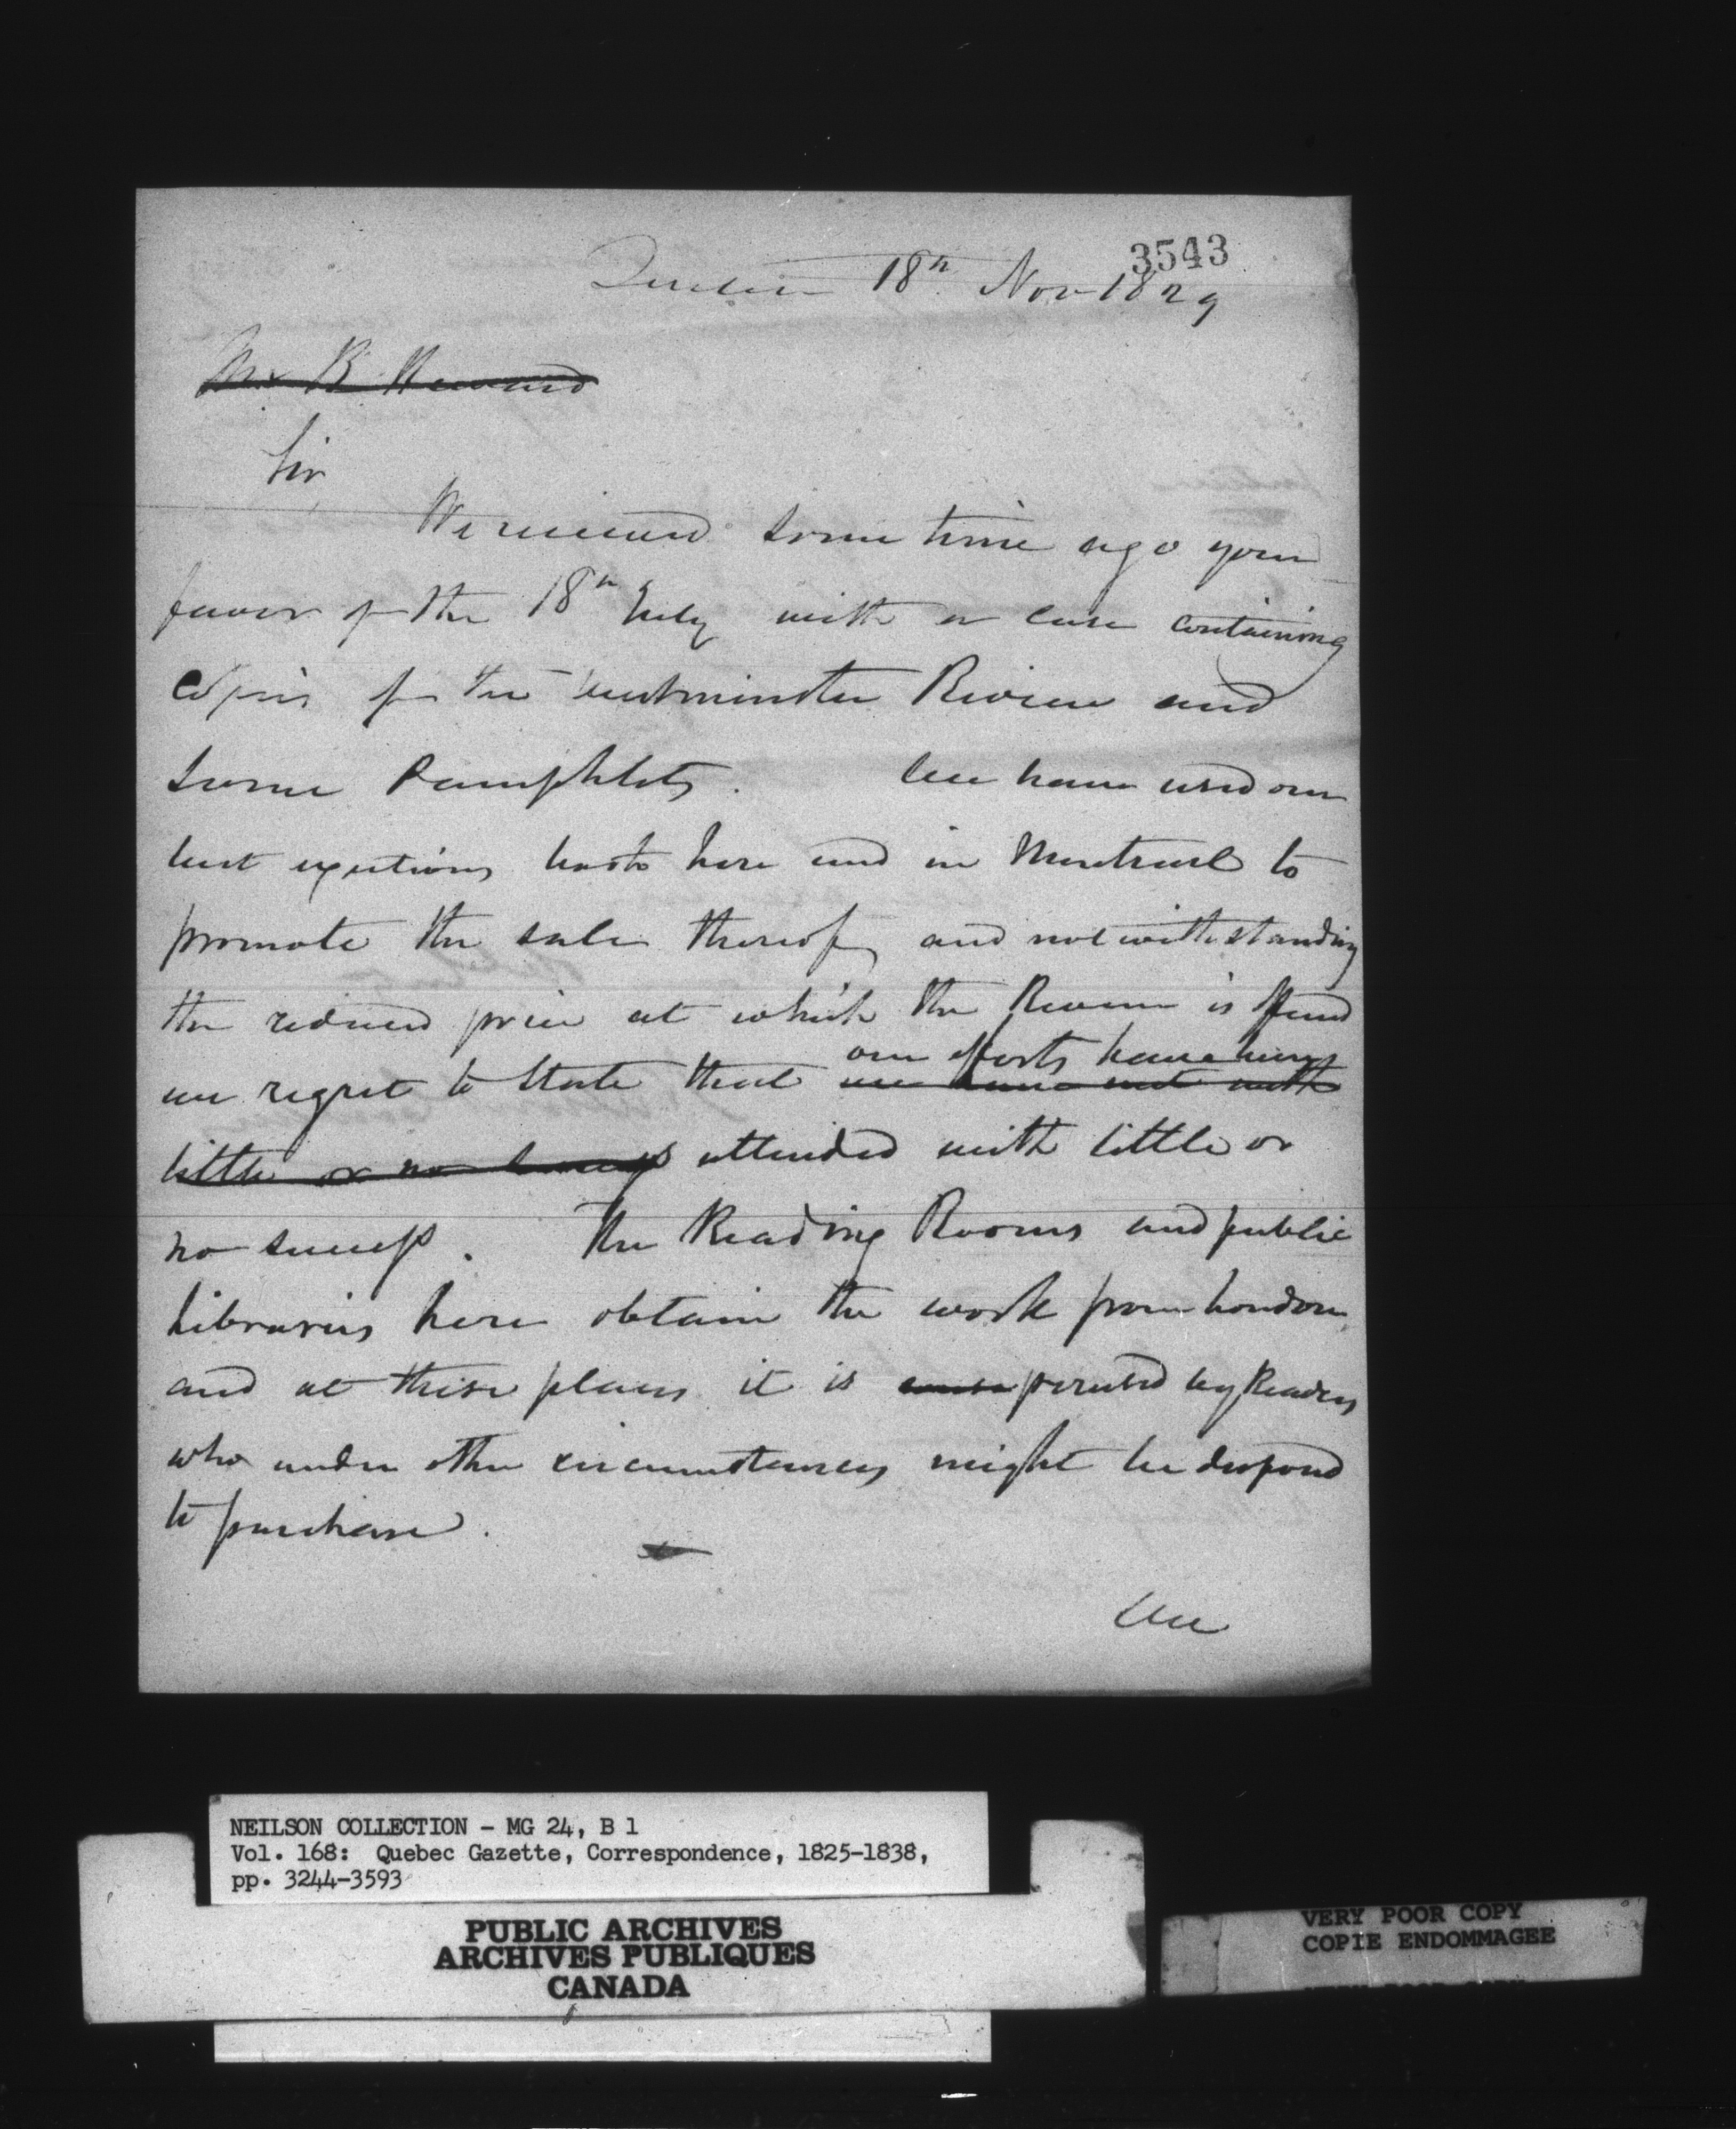 3543
Quebec 18th Nov 1829
Mr B Heward
Sir
We received some time ago your
favor of the 18th July with a case containing
Copies of the Westminster Review and
some Pamphlets. We have used our
best exertions both here and in Montreal to
promote the sale thereof and notwithstanding
the reduced price at which the Review is offered
our efforts have been
we regret to state that we have met with
little or no success attended with little or
no success. The Reading Rooms and public
Libraries here obtain the work from London
and at these places it is perused by Readers
who under other circumstances might be disposed
to purchase.
We
NEILSON COLLECTION - MG 24, B 1
Vol. 168: Quebec Gazette, Correspondence, 1825-1838,
pp. 3244-3593
PUBLIC ARCHIVES
ARCHIVES PUBLIQUES
CANADA
VERY POOR COPY
COPIE ENDOMMAGEE